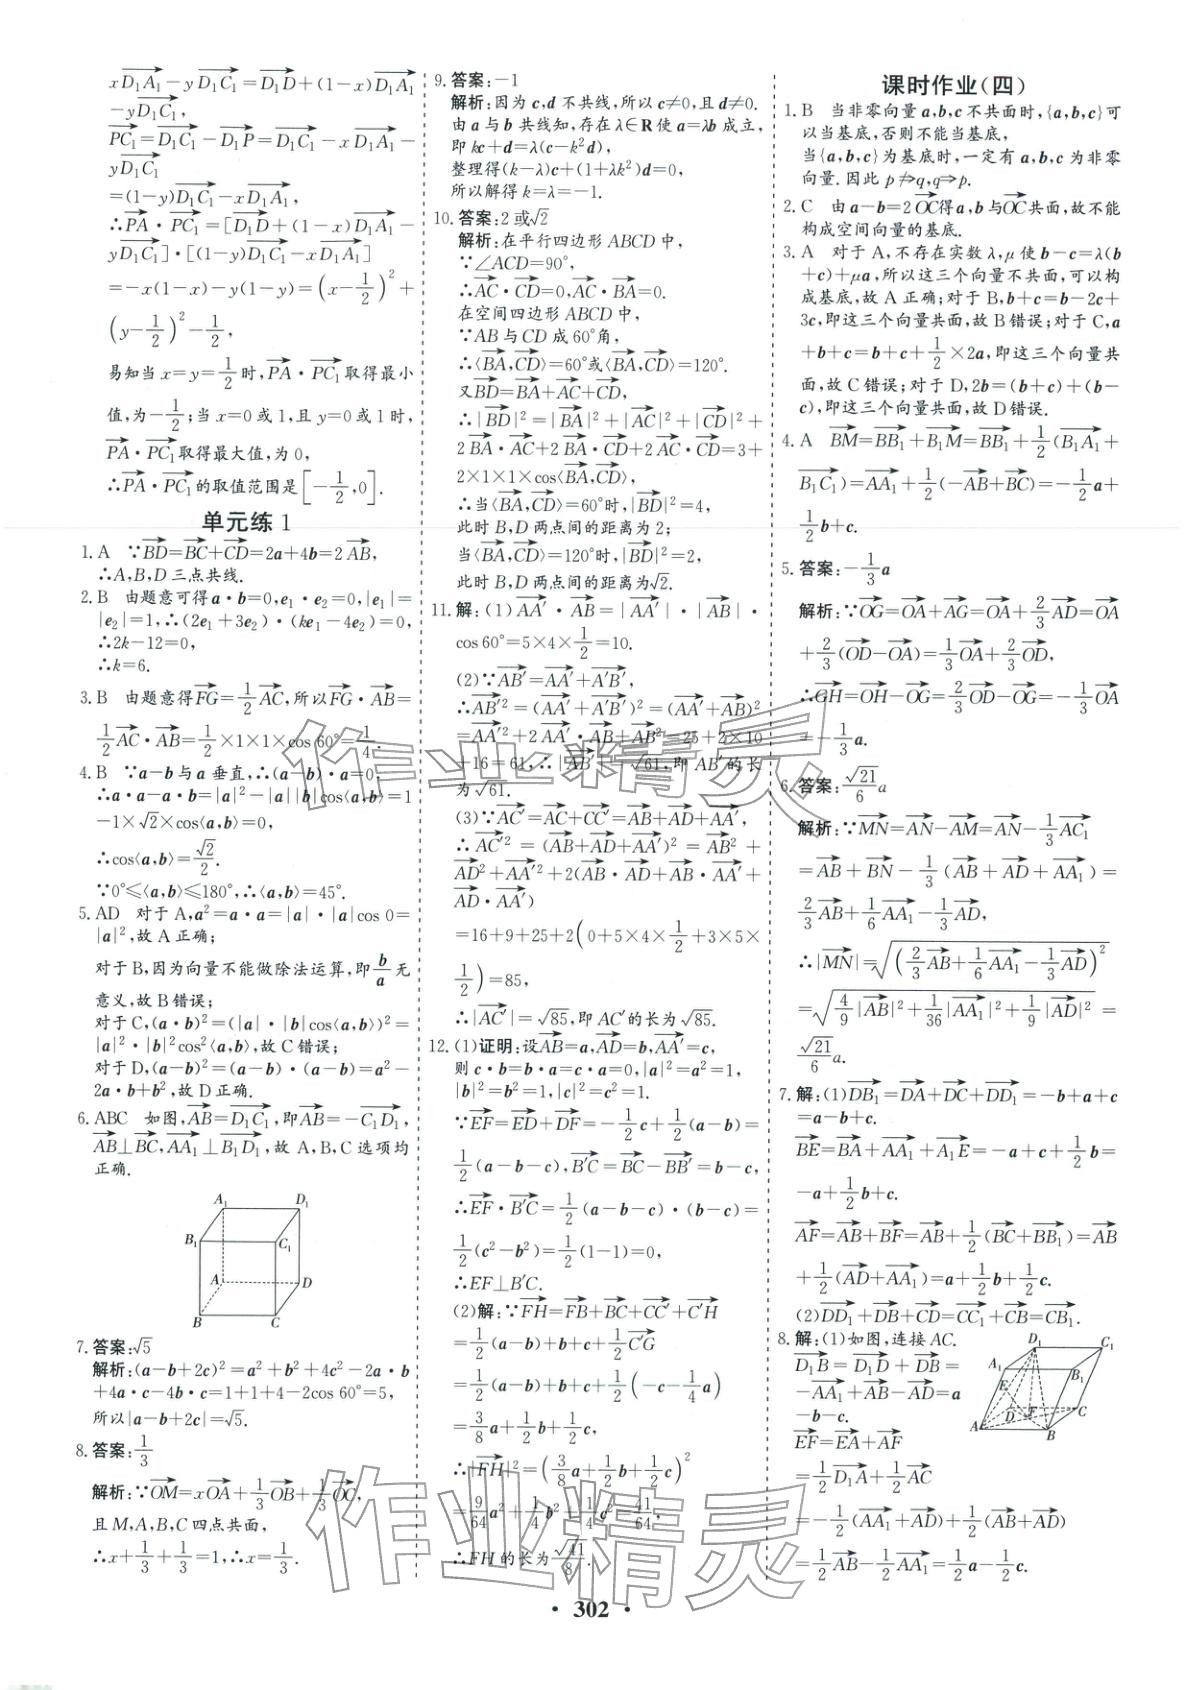 xD₁A₁−yD₁C₁=D₁D+(1−x)D₁A₁
−yD₁C₁,
PC₁=D₁C₁−D₁P=D₁C₁−xD₁A₁−
yD₁C₁
=(1−y)D₁C₁−xD₁A₁,
∴PA·PC₁=[D₁D+(1−x)D₁A₁−
yD₁C₁]·[(1−y)D₁C₁−xD₁A₁]
=−x(1−x)−y(1−y)=(x−1/2)²+
(y−1/2)²−1/2,
易知当x=y=1/2时,PA·PC₁取得最小
值,为−1/2;当x=0或1,且y=0或1时,
PA·PC₁取得最大值,为0,
∴PA·PC₁的取值范围是[−1/2,0].
单元练1
1.A ∵BD=BC+CD=2a+4b=2AB,
∴A,B,D三点共线.
2.B 由题意可得a·b=0,e₁·e₂=0,|e₁|=
|e₂|=1,∴(2e₁+3e₂)·(ke₁−4e₂)=0,
∴2k−12=0,
∴k=6.
3.B 由题意得FG=1/2AC,所以FG·AB=
1/2AC·AB=1/2×1×1×cos 60°=1/4.
4.B ∵a−b与a垂直,∴(a−b)·a=0,
∴a·a−a·b=|a|²−|a||b|cos⟨a,b⟩=1
−1×√2×cos⟨a,b⟩=0,
∴cos⟨a,b⟩=√2/2.
∵0°≤⟨a,b⟩≤180°,∴⟨a,b⟩=45°.
5.AD 对于A,a²=a·a=|a|·|a|cos 0=
|a|²,故A正确;
对于B,因为向量不能做除法运算,即b/a无
意义,故B错误;
对于C,(a·b)²=(|a|·|b|cos⟨a,b⟩)²=
|a|²·|b|²cos²⟨a,b⟩,故C错误;
对于D,(a−b)²=(a−b)·(a−b)=a²−
2a·b+b²,故D正确.
6.ABC 如图,AB=D₁C₁,即AB=−C₁D₁,
AB⊥BC,AA₁⊥B₁D₁,故A,B,C选项均
正确.
A₁ D₁
B₁ C₁
A D
B C
7.答案:√5
解析:(a−b+2c)²=a²+b²+4c²−2a·b
+4a·c−4b·c=1+1+4−2cos 60°=5,
所以|a−b+2c|=√5.
8.答案:1/3
解析:∵OM=xOA+1/3OB+1/3OC,
且M,A,B,C四点共面,
∴x+1/3+1/3=1,∴x=1/3.
9.答案:−1
解析:因为c,d不共线,所以c≠0,且d≠0.
由a与b共线知,存在λ∈R使a=λb成立,
即kc+d=λ(c−k²d),
整理得(k−λ)c+(1+λk²)d=0,
所以解得k=λ=−1.
10.答案:2或√2
解析:在平行四边形ABCD中,
∵∠ACD=90°,
∴AC·CD=0,AC·BA=0.
在空间四边形ABCD中,
∵AB与CD成60°角,
∴⟨BA,CD⟩=60°或⟨BA,CD⟩=120°.
又BD=BA+AC+CD,
∴|BD|²=|BA|²+|AC|²+|CD|²+
2BA·AC+2BA·CD+2AC·CD=3+
2×1×1×cos⟨BA,CD⟩,
∴当⟨BA,CD⟩=60°时,|BD|²=4,
此时B,D两点间的距离为2;
当⟨BA,CD⟩=120°时,|BD|²=2,
此时B,D两点间的距离为√2.
11.解:(1)AA′·AB=|AA′|·|AB|·
cos 60°=5×4×1/2=10.
(2)∵AB′=AA′+A′B′,
∴AB′²=(AA′+A′B′)²=(AA′+AB)²
=AA′²+2AA′·AB+AB²=25+2×10
+16=61,∴|AB′|=√61,即AB′的长
为√61.
(3)∵AC′=AC+CC′=AB+AD+AA′,
∴AC′²=(AB+AD+AA′)²=AB²+
AD²+AA′²+2(AB·AD+AB·AA′+
AD·AA′)
=16+9+25+2(0+5×4×1/2+3×5×
1/2)=85,
∴|AC′|=√85,即AC′的长为√85.
12.(1)证明:设AB=a,AD=b,AA′=c,
则c·b=b·a=c·a=0,|a|²=a²=1,
|b|²=b²=1,|c|²=c²=1.
∵EF=ED+DF=−1/2c+1/2(a−b)=
1/2(a−b−c),B′C=BC−BB′=b−c,
∴EF·B′C=1/2(a−b−c)·(b−c)=
1/2(c²−b²)=1/2(1−1)=0,
∴EF⊥B′C.
(2)解:∵FH=FB+BC+CC′+C′H
=1/2(a−b)+b+c+1/2C′G
=1/2(a−b)+b+c+1/2(−c−1/4a)
=3/8a+1/2b+1/2c,
∴|FH|²=(3/8a+1/2b+1/2c)²
=9/64a²+1/4b²+1/4c²=41/64,
∴FH的长为√41/8.
课时作业(四)
1.B 当非零向量a,b,c不共面时,{a,b,c}可
以当基底,否则不能当基底,
当{a,b,c}为基底时,一定有a,b,c为非零
向量.因此p⇏q,q⇒p.
2.C 由a−b=2OC得a,b与OC共面,故不能
构成空间向量的基底.
3.A 对于A,不存在实数λ,μ使b−c=λ(b
+c)+μa,所以这三个向量不共面,可以构
成基底,故A正确;对于B,b+c=b−2c+
3c,即这三个向量共面,故B错误;对于C,a
+b+c=b+c+1/2×2a,即这三个向量共
面,故C错误;对于D,2b=(b+c)+(b−
c),即这三个向量共面,故D错误.
4.A BM=BB₁+B₁M=BB₁+1/2(B₁A₁+
B₁C₁)=AA₁+1/2(−AB+BC)=−1/2a+
1/2b+c.
5.答案:−1/3a
解析:∵OG=OA+AG=OA+2/3AD=OA
+2/3(OD−OA)=1/3OA+2/3OD,
∴GH=OH−OG=2/3OD−OG=−1/3OA
=−1/3a.
6.答案:√21/6a
解析:∵MN=AN−AM=AN−1/3AC₁
=AB+BN−1/3(AB+AD+AA₁)=
2/3AB+1/6AA₁−1/3AD,
∴|MN|=√(2/3AB+1/6AA₁−1/3AD)²
=√4/9|AB|²+1/36|AA₁|²+1/9|AD|²=
√21/6a.
7.解:(1)DB₁=DA+DC+DD₁=−b+a+c
=a−b+c.
BE=BA+AA₁+A₁E=−a+c+1/2b=
−a+1/2b+c.
AF=AB+BF=AB+1/2(BC+BB₁)=AB
+1/2(AD+AA₁)=a+1/2b+1/2c.
(2)DD₁+DB+CD=CC₁+CB=CB₁.
8.解:(1)如图,连接AC.
D₁B=D₁D+DB=
−AA₁+AB−AD=a
−b−c.
EF=EA+AF
=1/2D₁A+1/2AC
=−1/2(AA₁+AD)+1/2(AB+AD)
=1/2AB−1/2AA₁=1/2a−1/2c.
D₁ C₁
A₁ B₁
E
D F C
A B
作业精灵
作业精灵
· 302 ·